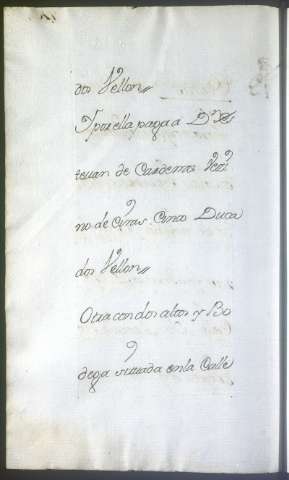 dos Vellon//
Y por ella paga a Dn Es
tevan de Cardenas Veci
no de Ciras Cinco Duca
dos Vellon//
Otra con dos altos y Bo
dega situada en la Calle